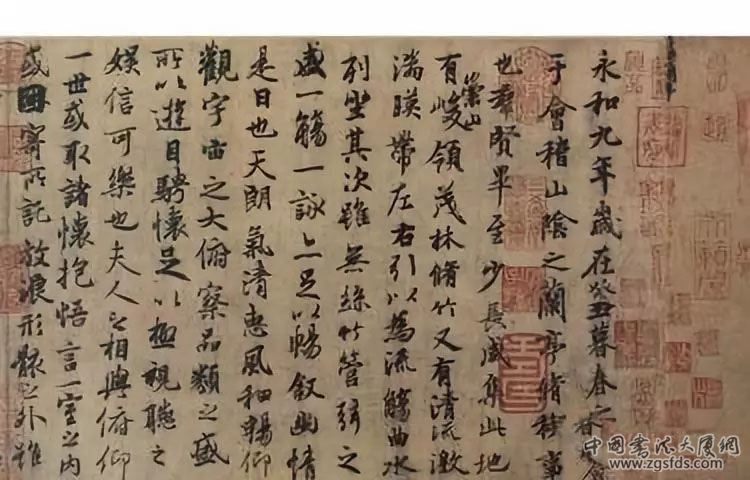 永和九年歲在癸丑暮春之初會
于會稽山陰之蘭亭脩禊事
也羣賢畢至少長咸集此地
有崇山峻領茂林脩竹又有清流激
湍暎帶左右引以為流觴曲水
列坐其次雖無絲竹管弦之
盛一觴一詠亦足以暢敘幽情
是日也天朗氣清惠風和暢仰
觀宇宙之大俯察品類之盛
所以遊目騁懷足以極視聽之
娛信可樂也夫人之相與俯仰
一世或取諸懷抱悟言一室之內
或因寄所託放浪形骸之外雖
中国书法大厦网
www.zgsfds.com